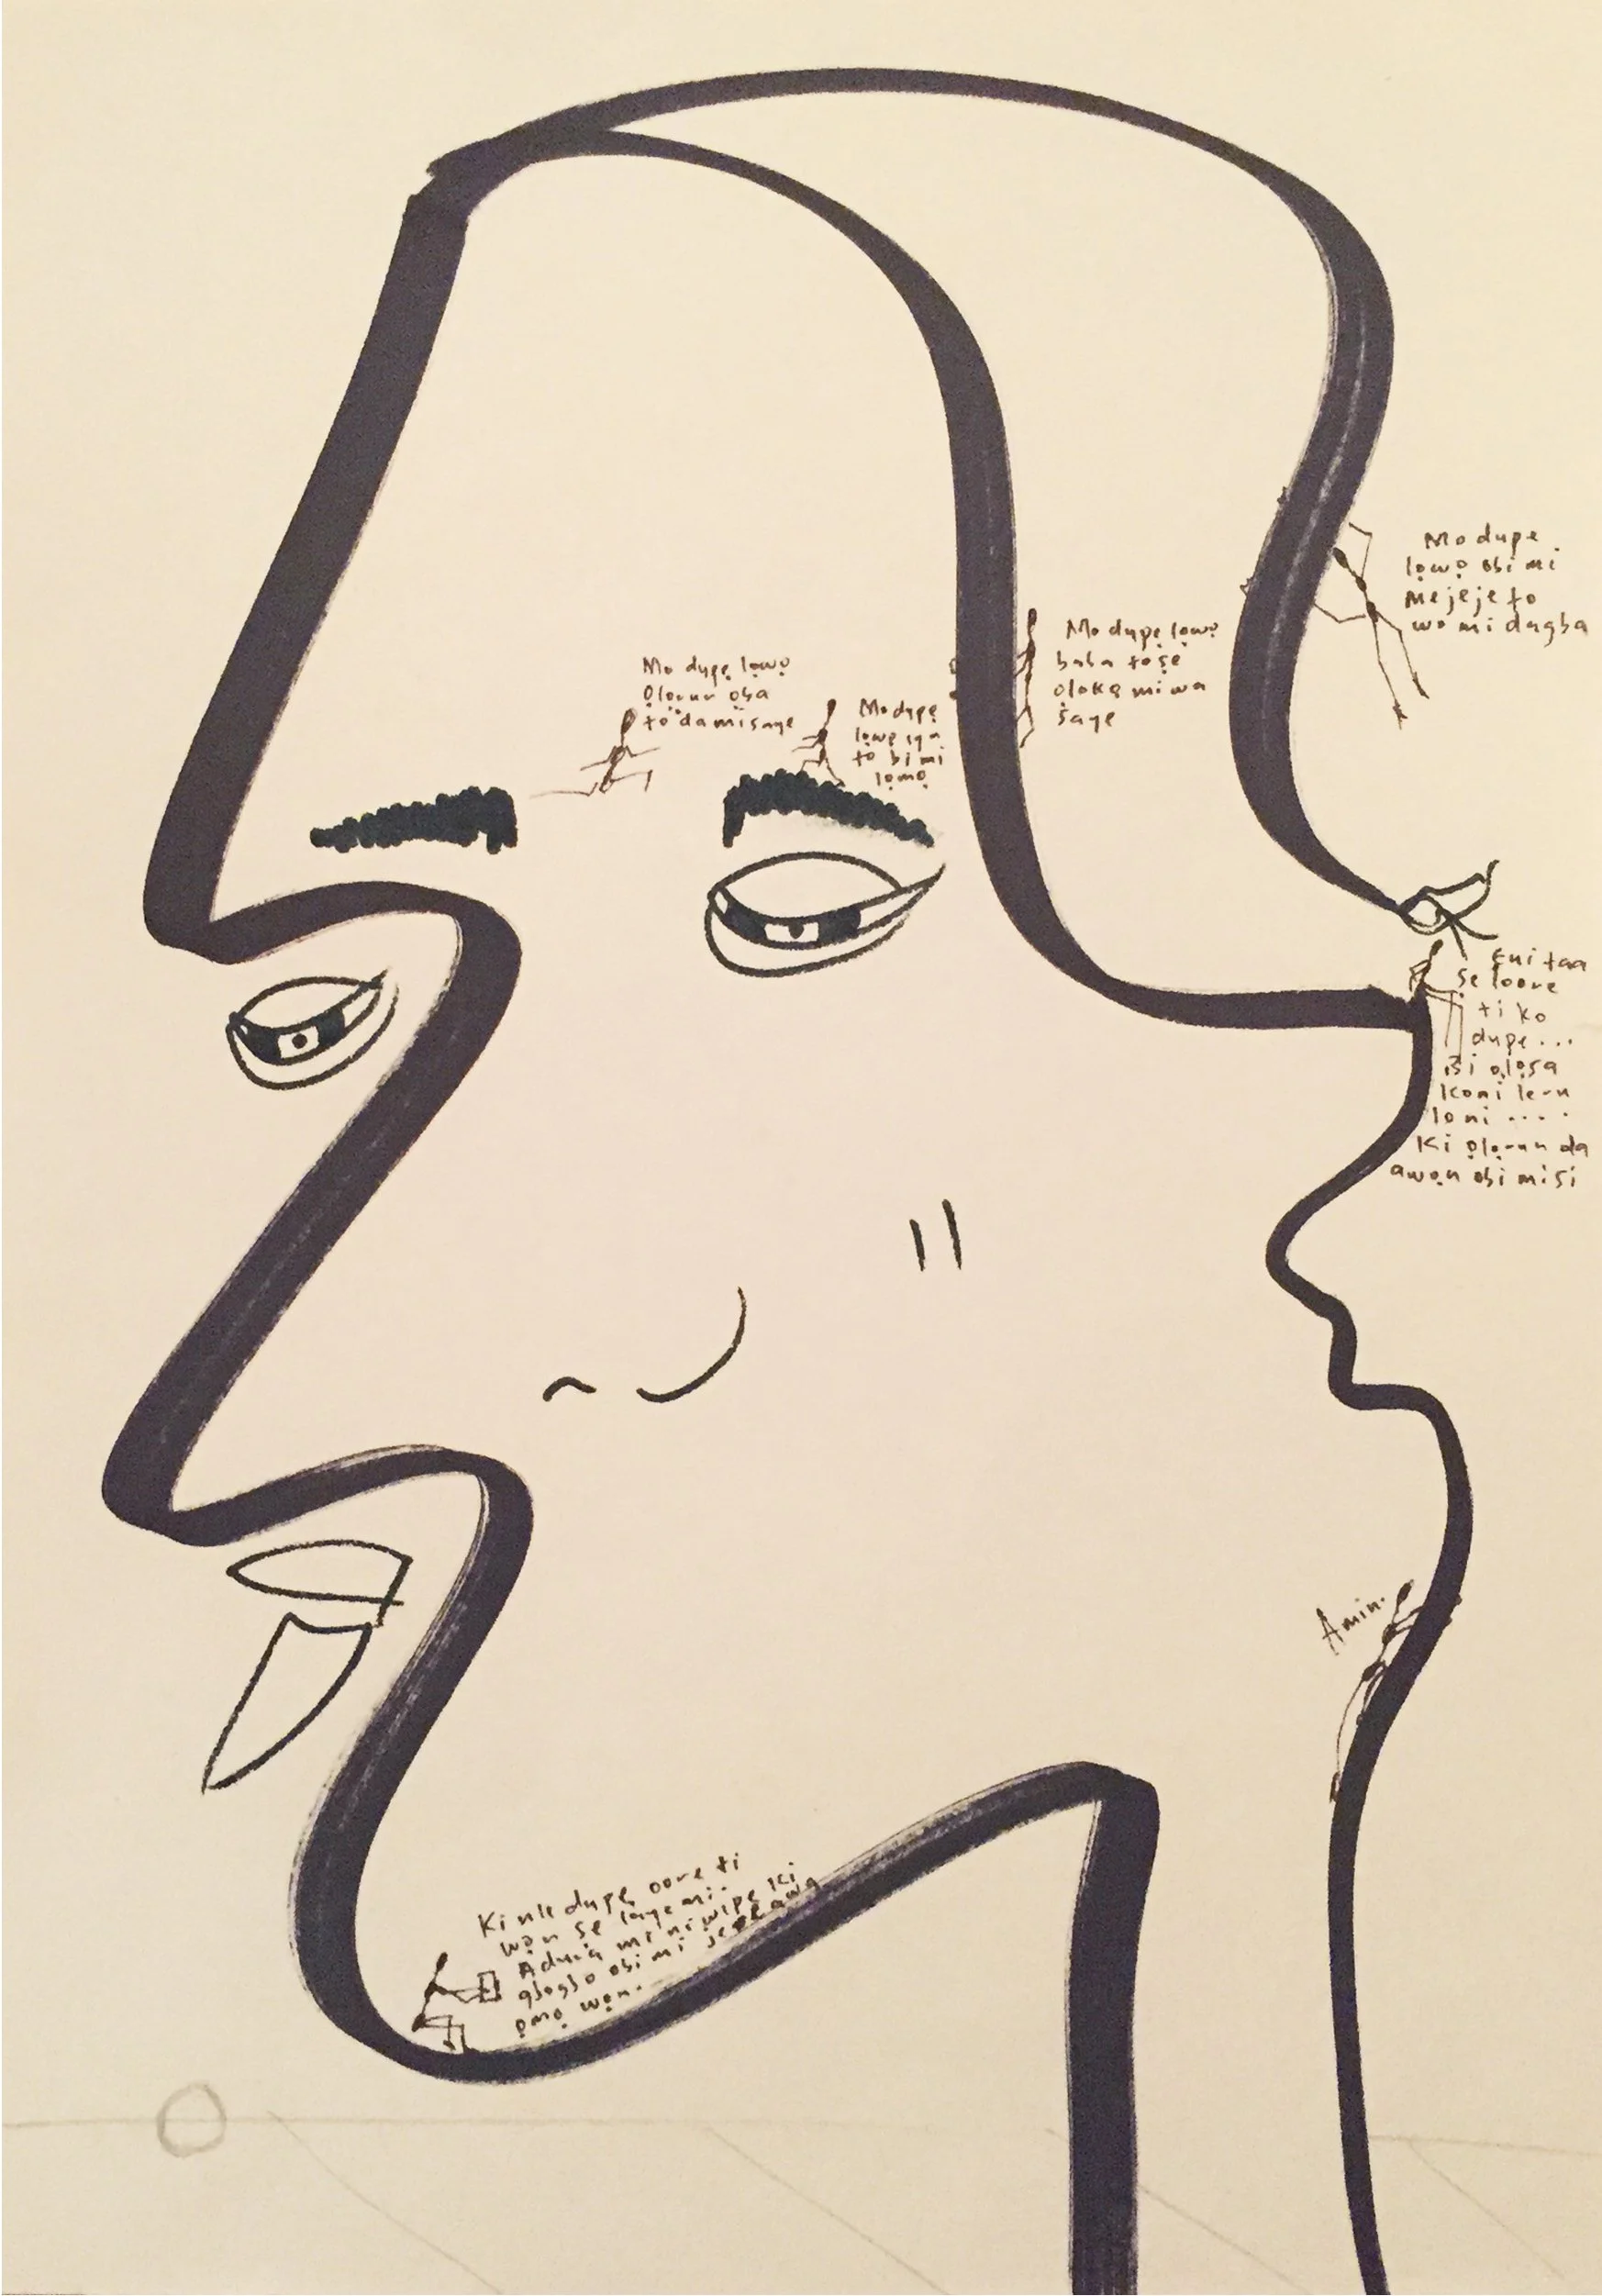 Mo dupẹ lọwọ
Ọlọrun ọba
to da mi saye
Mo dupẹ
lọwọ iya
to bi mi
lọmọ
Mo dupẹ lọwọ
baba to ṣe
ọlokọ mi wa
saye
Mo dupẹ
lọwọ obi mi
mejeje to
wo mi dagba
Eni taa
ṣe loore
ti ko
dupe...
Bi ọlọsa
koni leru
loni ....
Ki ọlọrun da
awọn obi mi si
Ki nle dupẹ oore ti
wọn ṣe laye mi.
Adura mi ni wipe ki
gbogbo obi mi jere awọn
ọmọ wọn.
Amin.